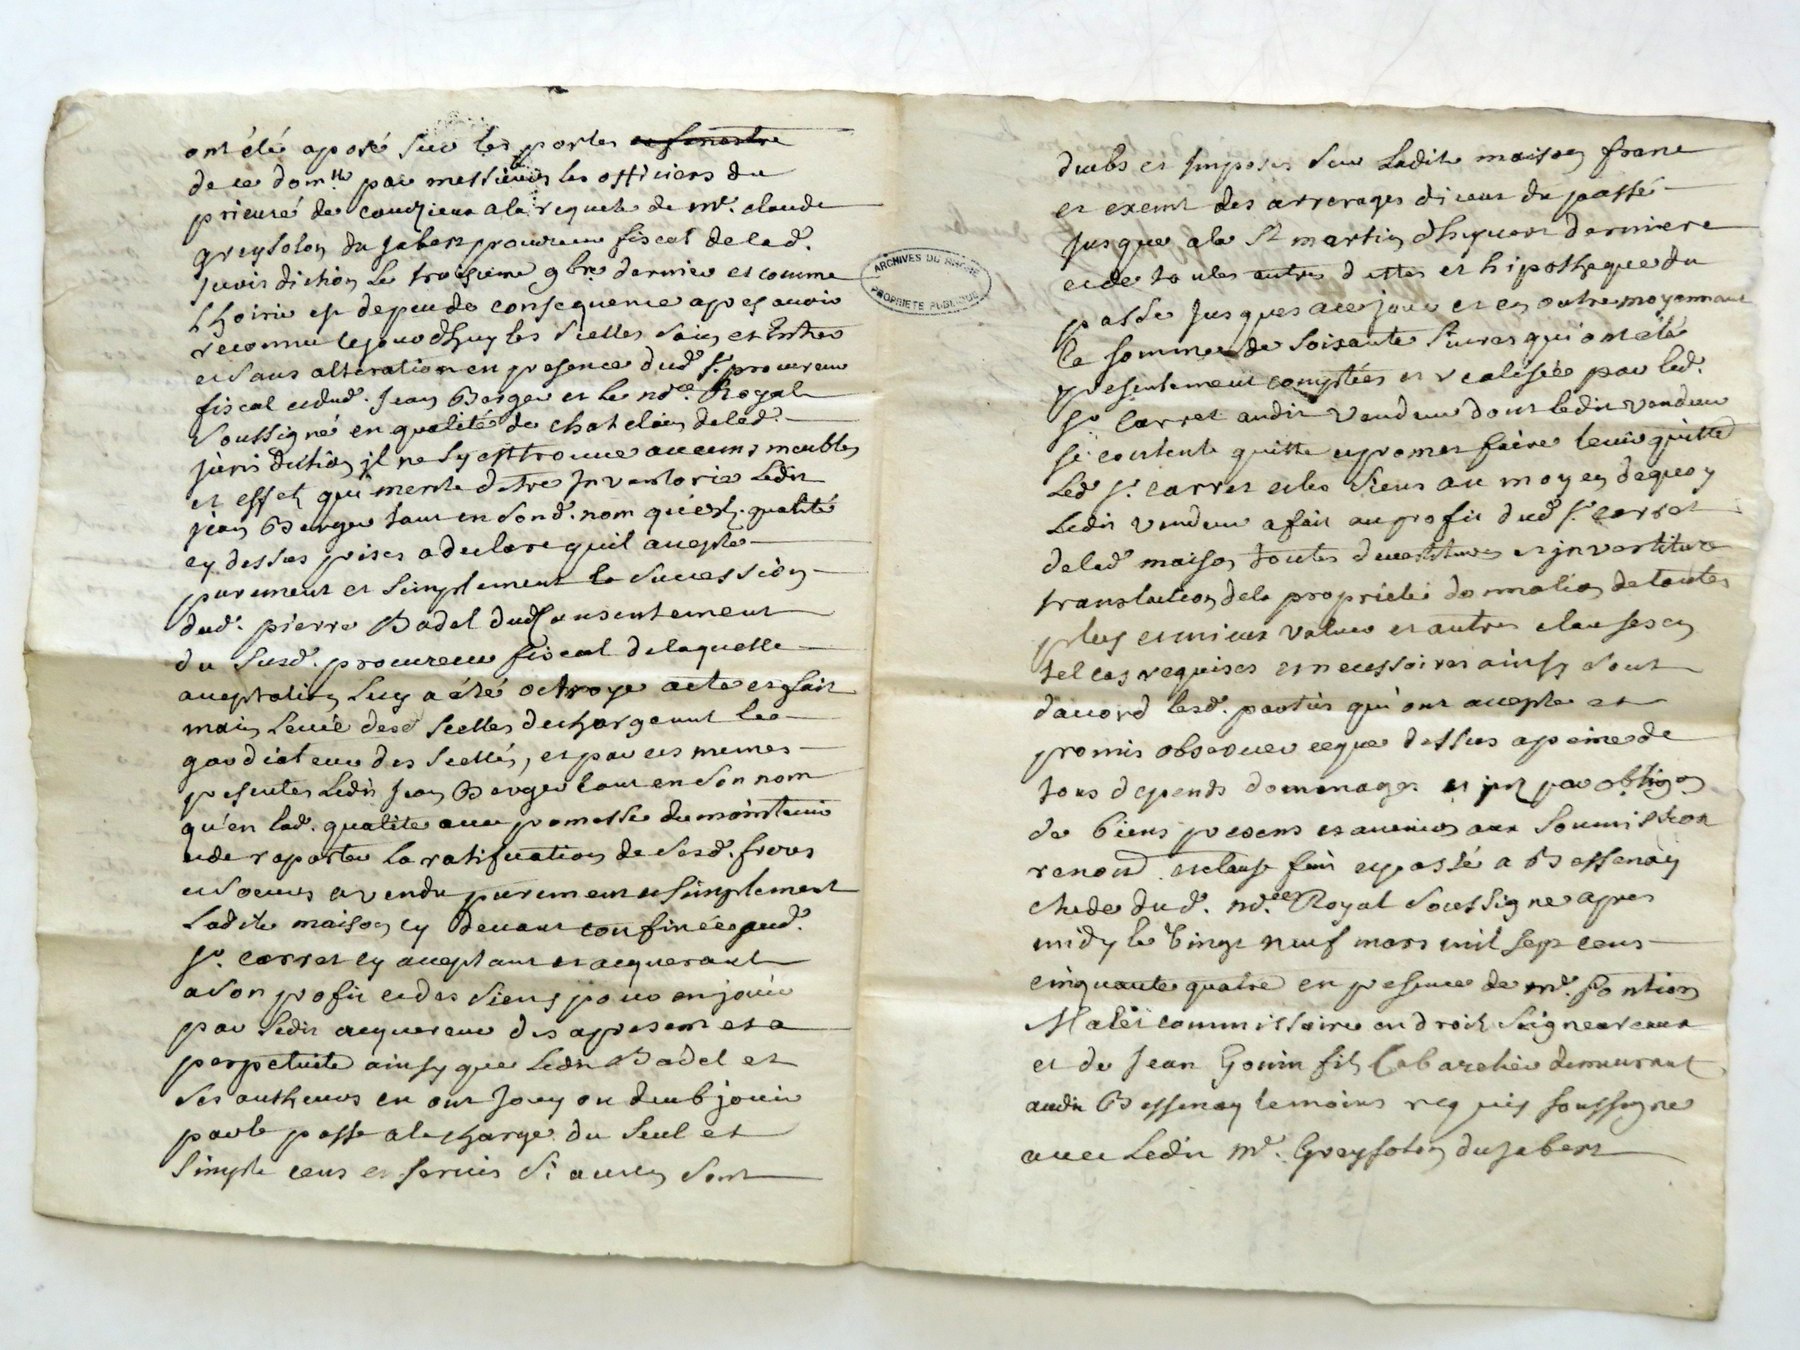 ont été aposé sur les portes et fenestre
de ce dom.lle par messieurs les officiers du
prieuré de couzieux a la requete de m.e claude
greysolon du jabert procureur fiscal de lad.
jurisdiction le troisieme 9bre dernier et comme
lhoirie est de peu de consequence apres avoir
reconnu le jourdhuy les scelles sains et entier
et sans alteration en presence dud. sr. procureur
fiscal et dud. Jean Berger et le no.re Royal
soussigné en qualité de chatelain de lad.
jurisdiction il ne sy est trouve aucuns meubles
et effets qui merite detre Inventorié Ledit
jean Berger tant en son d. nom qu'esd. qualité
cy dessus prises a declare quil accepte
purement et simplement la succession
dud. pierre Badel du consentement
du susd. procureur fiscal de laquelle
acceptation luy a été octroyé acte et fait
main levée desd scelles dechargeant les
gardiateur des scellés, et par ces memes
presentes Ledit Jean Berger tant en son nom
qu'en lad. qualite avec promesse de maintenir
et de raporter la ratification de sesd. freres
et soeurs a vendu purement et simplement
Ladite maison cy devant confinée aud.
sr. carret cy acceptant et acquerant
a son profit et des siens pour en jouir
par ledit acquereur des apresent et a
perpetuité ainsy que Ledit Badel et
ses autheurs en ont Jouy ou deub jouir
par le passe a la charge du seul et
simple cens et servis sy aucun sont
deubs et imposes sur Ladite maison franc
et exemt des arrerages diceux du passé
jusque a la St martin dhyvert derniere
et de toutes autres dettes et hipotheque du
passe jusques a ce jour et en outre moyennant
la somme de soixante livres qui ont été
presentement comptées et realisée par led.
sr Carret audit vendeur dont ledit vendeur
se contente quitte et promet faire tenir quitte
Led sr. carret et les siens au moyen de quoy
Ledit vendeur a fait au profit dud sr. carret
de lad maison toutes devestitures et investiture
translation de la proprieté donnation de toutes
plus et mieux values et autres clauses en
tel cas requises et necessaires ainsy sont
d'accord lesd. parties qui ont accepte et
promis observer ce que dessus a peine de
tous depends dommages et int par oblig.on
de biens presens et avenirs aux soumission
renon.d et clause fait et passé a Bessenay
etude dud. no.re Royal soussigne apres
midy le vingt neuf mars mil sept cens
cinquante quatre en presence de m.e
Malet commissaire en droits seigneuriaux
et de Jean Gonin fils Cabaretier demeurant
audit Bessenay temoins requis soussigne
avec Ledit m.e Greysolon du jabert
ARCHIVES DU RHÔNE
PROPRIÉTÉ PUBLIQUE